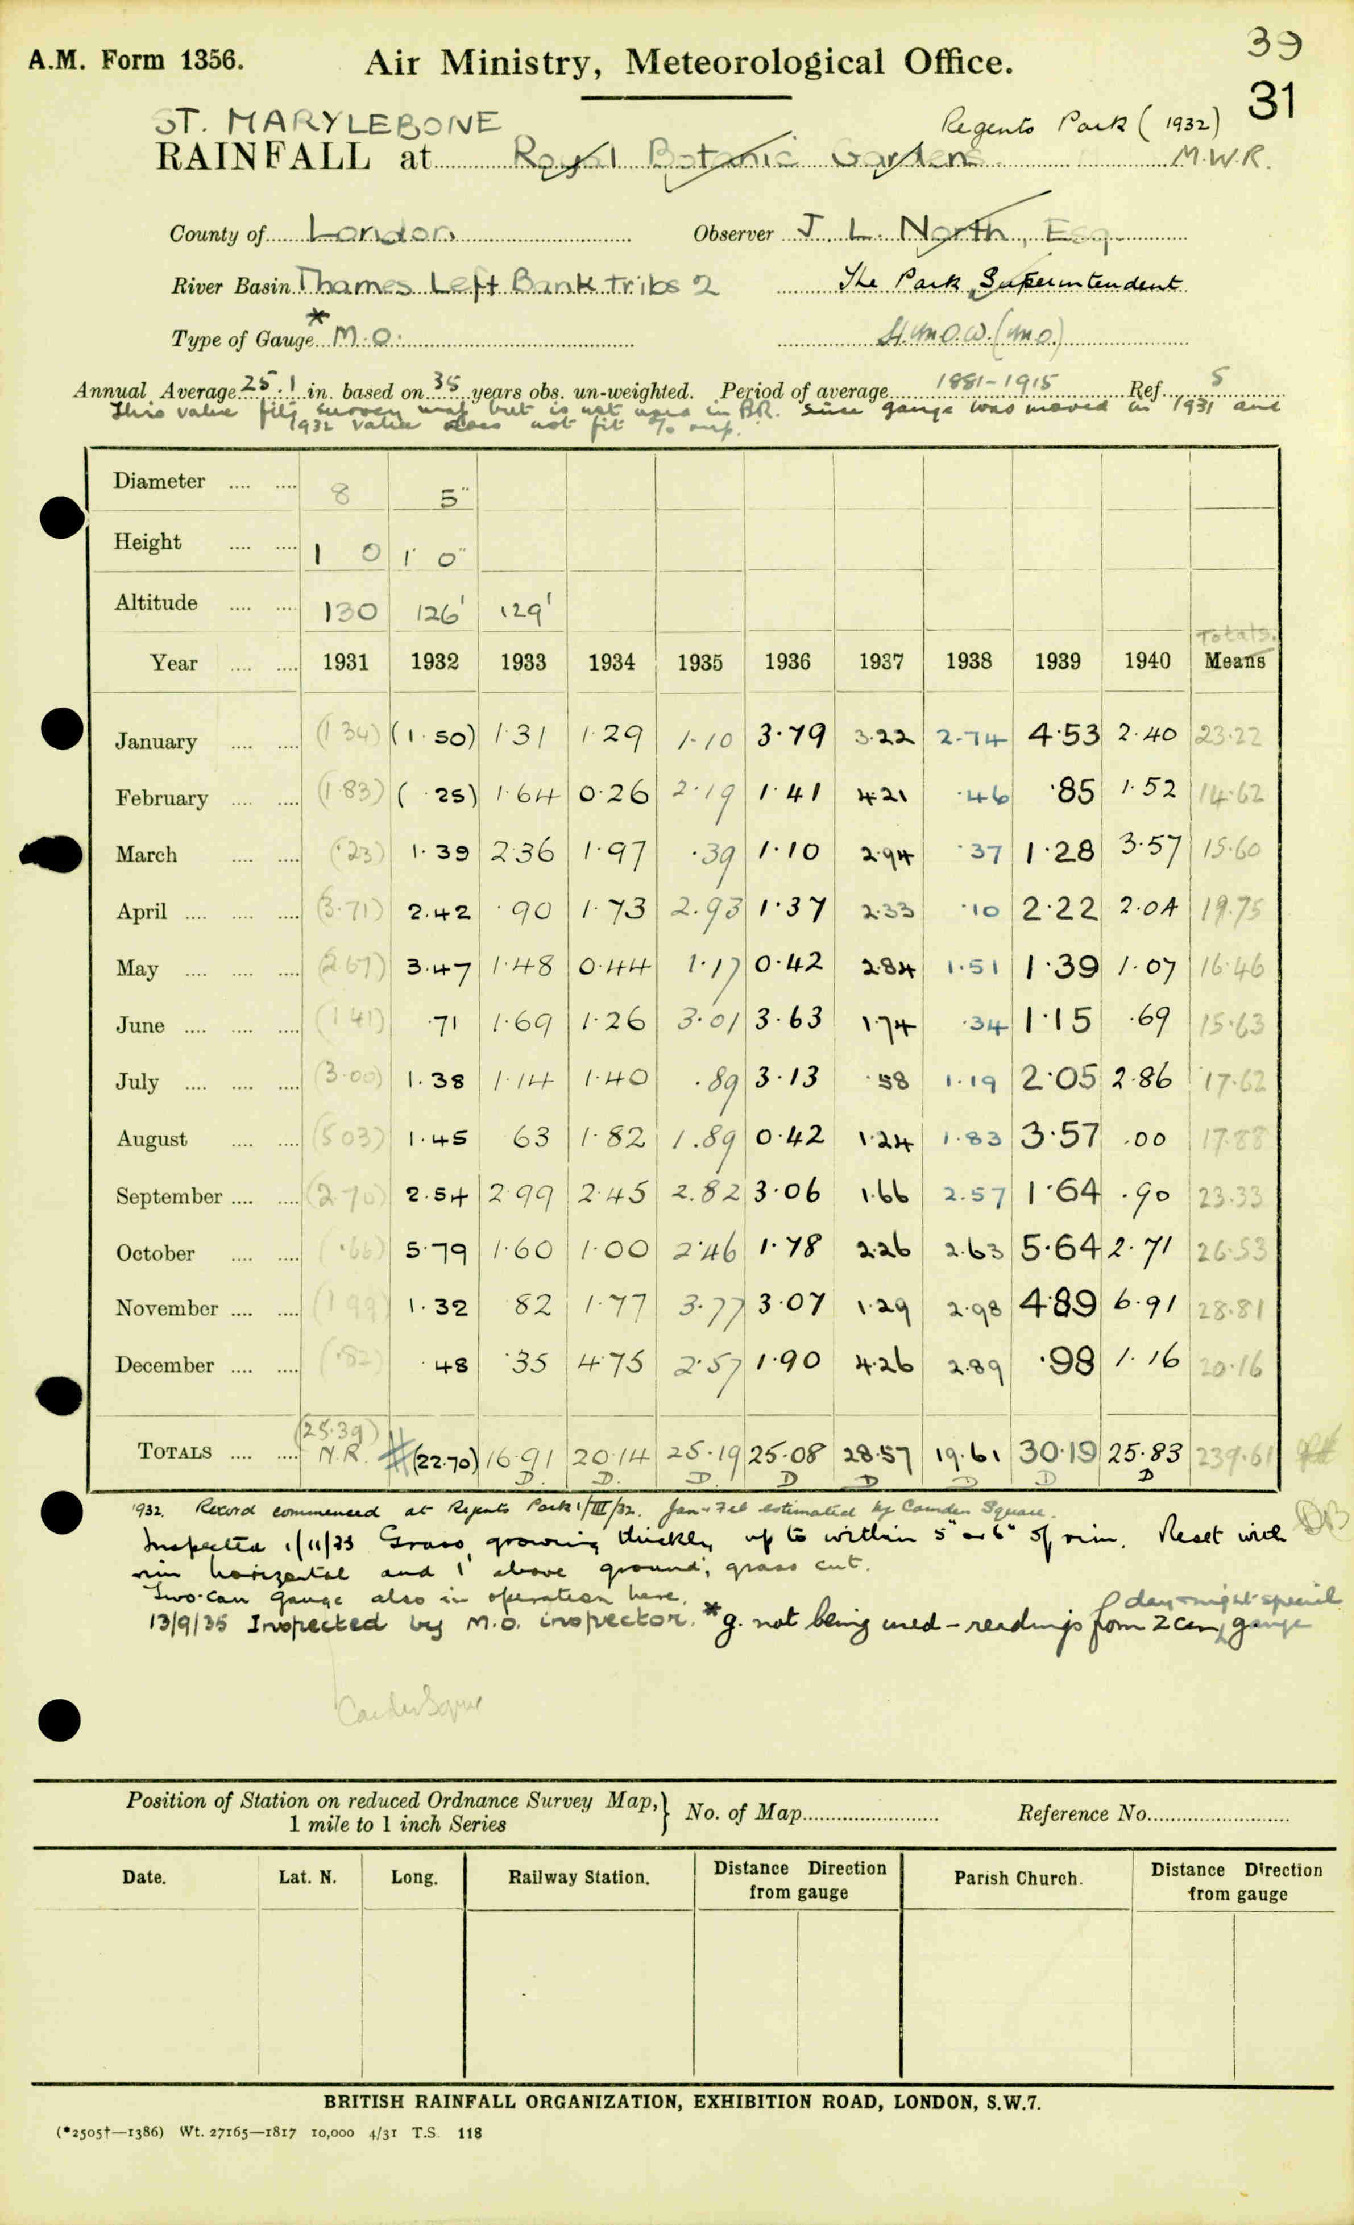 39
A.M. Form 1356. Air Ministry, Meteorological Office.
31
ST. MARYLEBONE Regents Park (1932)
RAINFALL at Royal Botanic Gardens M.W.R.
County of London Observer J. L. North, Esq.
River Basin Thames Left Bank tribs 2 The Park Superintendent
Type of Gauge * M.O. H.M.O.W. (M.O.)
Annual Average 25.1 in. based on 35 years obs. un-weighted. Period of average 1881-1915 Ref. 5
This value fits survey map but is not used in B.R. since gauge was moved in 1931 and
1932 value does not fit % map.
Diameter 8 5"
Height 1 0 1' 0"
Altitude 130 126' 129'
Totals.
Year 1931 1932 1933 1934 1935 1936 1937 1938 1939 1940 Means
January (1.34) (1.50) 1.31 1.29 1.10 3.79 3.22 2.74 4.53 2.40 23.22
February (1.83) (.25) 1.64 0.26 2.19 1.41 4.21 .46 .85 1.52 14.62
March (.23) 1.39 2.36 1.97 .39 1.10 2.94 .37 1.28 3.57 15.60
April (3.71) 2.42 .90 1.73 2.93 1.37 2.33 .10 2.22 2.04 19.75
May (2.67) 3.47 1.48 0.44 1.17 0.42 2.84 1.51 1.39 1.07 16.46
June (1.41) .71 1.69 1.26 3.01 3.63 1.74 .34 1.15 .69 15.63
July (3.00) 1.38 1.14 1.40 .89 3.13 .58 1.19 2.05 2.86 17.62
August (5.03) 1.45 63 1.82 1.89 0.42 1.24 1.83 3.57 .00 17.88
September (2.70) 2.54 2.99 2.45 2.82 3.06 1.66 2.57 1.64 .90 23.33
October (.66) 5.79 1.60 1.00 2.46 1.78 2.26 2.63 5.64 2.71 26.53
November (1.99) 1.32 82 1.77 3.77 3.07 1.29 2.98 4.89 6.91 28.81
December (.82) .48 .35 4.75 2.57 1.90 4.26 2.89 .98 1.16 20.16
(25.39)
TOTALS N.R. # (22.70) 16.91 20.14 25.19 25.08 28.57 19.61 30.19 25.83 239.61
D. D. D. D D D D D
1932. Record commenced at Regents Park 1/III/32. Jan & Feb estimated by Camden Square.
Inspected 1/11/33 Grass growing thickly up to within 5" or 6" of rim. Reset with
rim horizontal and 1' above ground; grass cut.
Two-can gauge also in operation here.
day & night special
13/9/35 Inspected by M.O. inspector. * g. not being used - readings from 2 can gauge
Camden Square
Position of Station on reduced Ordnance Survey Map, } No. of Map Reference No.
1 mile to 1 inch Series
Date. Lat. N. Long. Railway Station. Distance Direction from gauge Parish Church. Distance Direction from gauge
BRITISH RAINFALL ORGANIZATION, EXHIBITION ROAD, LONDON, S.W.7.
(*2505†—1386) Wt. 27165—1817 10,000 4/31 T.S. 118